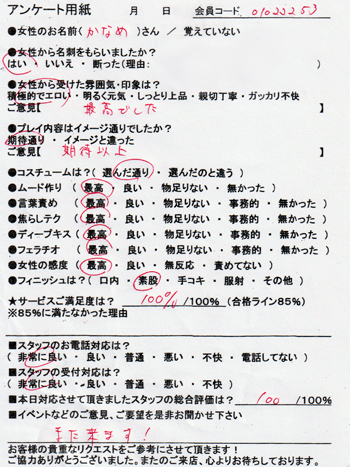 アンケート用紙　　月　　日　会員コード 01022253
●女性のお名前( かなめ )さん ／ 覚えていない
●女性から名刺をもらいましたか？
はい ・ いいえ ・ 断った(理由:　　　　)
●女性から受けた雰囲気・印象は？
積極的でエロい ・ 明るく元気 ・ しっとり上品 ・ 親切丁寧 ・ ガッカリ不快
ご意見【 最高でした 】
●プレイ内容はイメージ通りでしたか？
期待通り ・ イメージと違った
ご意見【 期待以上 】
●コスチュームは？( 選んだ通り ・ 選んだのと違う )
●ムード作り ( 最高 ・ 良い ・ 物足りない ・ 無かった )
●言葉責め ( 最高 ・ 良い ・ 物足りない ・ 事務的 ・ 無かった )
●焦らしテク ( 最高 ・ 良い ・ 物足りない ・ 事務的 ・ 無かった )
●ディープキス ( 最高 ・ 良い ・ 物足りない ・ 事務的 ・ 無かった )
●フェラチオ ( 最高 ・ 良い ・ 物足りない ・ 事務的 ・ 無かった )
●女性の感度 ( 最高 ・ 良い ・ 無反応 ・ 責めてない )
●フィニッシュは？( 口内 ・ 素股 ・ 手コキ ・ 服射 ・ その他 )
★サービスご満足度は？ 100% /100% (合格ライン85%)
※85%に満たなかった理由
■スタッフのお電話対応は？
( 非常に良い ・ 良い ・ 普通 ・ 悪い ・ 不快 ・ 電話してない )
■スタッフの受付対応は？
( 非常に良い ・ 良い ・ 普通 ・ 悪い ・ 不快 )
■本日対応させて頂きましたスタッフの総合評価は？ 100 /100%
■イベントなどのご意見、ご要望を是非お聞かせ下さい
また来ます！
お客様の貴重なリクエストをご参考にさせて頂きます！
ご協力ありがとうございました。またのご来店、心よりお待ちしております。